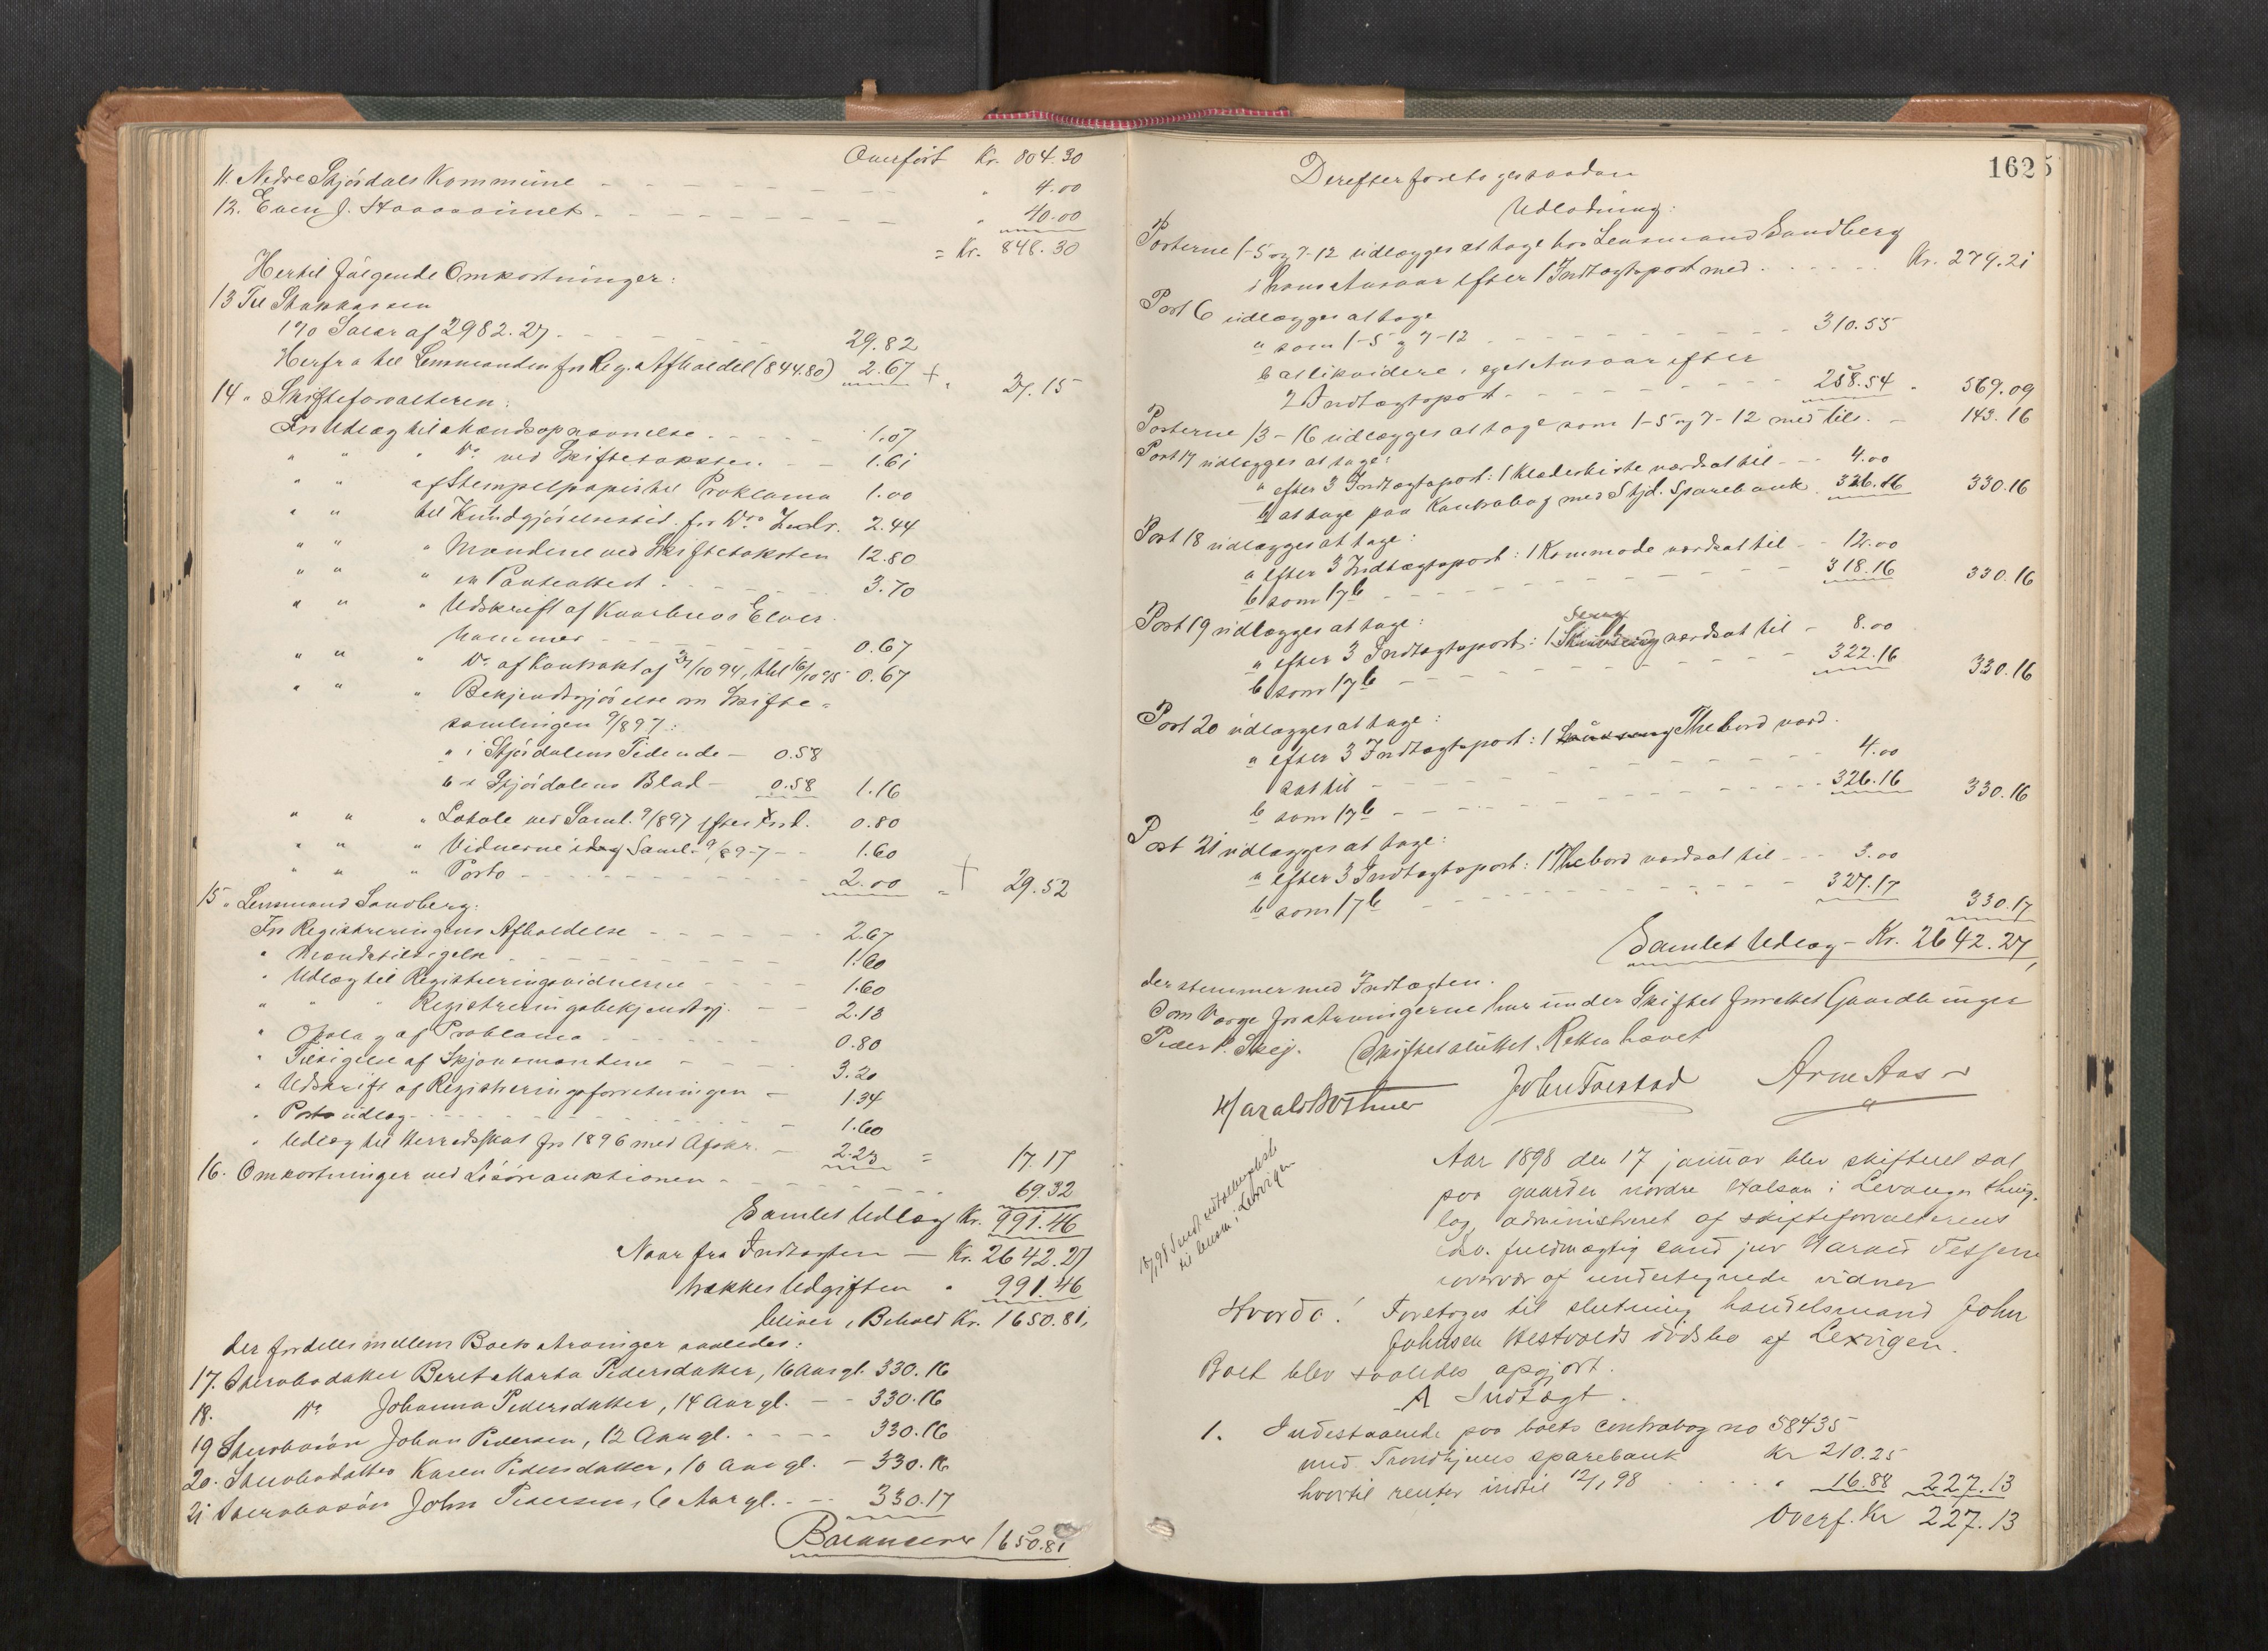 Overført Kr. 804.30
11. Nedre Stjørdals Kommune - - - " 4.00
12. Even J. - - - " 40.00
= Kr. 848.30
Hertil følgende Omkostninger:
13 Til Statskassen
1% Salær af 2982.27 - - - 29.82
Herfra til Lensmanden for Reg. Afholdel (844.80) 2.67 + " 27.15
14 " Skifteforvalteren:
For Udlæg til Mændsopnævnelse - - - 1.07
" " " Do ved Skiftetaksten - - 1.61
" " af Stempelpapir til Proklama 1.00
" " til Kundgjørelsestid. for Do 2.44
" " " Mændene ved Skiftetaksten 12.80
" " " en Panteattest - - - 3.70
" " " Udskrift af Elver
hammer - - - 0.67
" " " Do af Kontrakt af 27/10 94, thl 16/10 95 0.67
" " " Bekjendtgjørelse om Skifte-
samlingen 9/8 97:
a i Stjørdalens Tidende - 0.58
b i Stjørdalens Blad - 0.58 1.16
" " " Lokale ved Saml. 9/8 97 efter 0.80
" " " Vidnerne idag Saml. 9/8 97 - - 1.60
" " " Porto - - - 2.00 = + 29.52
15 " Lensmand Sandberg:
For Registreringens Afholdelse - - - 2.67
" Mændstilsigelse - - - 1.60
" Udlæg til Registreringsvidnerne - - - 1.60
" " " Registreringsbekjendtgj. - - 2.13
" Opslag af Proklama - - - 0.80
" Tilsigelse af Skjønsmændene - - - 3.20
" Udskrift af Registreringsforretningen - 1.34
" Porto udlæg - - - 1.60
" Udlæg til Herredsskat for 1896 med Afskr. - 2.23 = 17.17
16. Omkostninger ved Løsøreauktionen - - - 69.32
Samlet Udlæg Kr. 991.46
Naar fra Indtægten - Kr. 2642.27
trækkes Udgiften " 991.46
bliver i Behold Kr. 1650.81,
der fordeles mellem Boets Arvinger saaledes:
17. Sterbodatter Beret Marta Pedersdatter, 16 Aar gl. 330.16
18. Do Johanna Pedersdatter, 14 Aar gl. - - 330.16
19 Sterbosøn Johan Pedersen, 12 Aar gl. - - - 330.16
20. Sterbodatter Karen Pedersdatter, 10 Aar gl. - 330.16
21 Sterbosøn John Pedersen, 6 Aar gl. - - 330.17
Balancerer 1650.81
1625
Derefter foretoges saadan
Udlodning:
Posterne 1-5 og 7-12 udlægges at tage hos Lensmand Sandberg
i hans Ansvar efter 1 Indtægtspost med - - - Kr. 279.21
Post 6 udlægges at tage
a som 1-5 og 7-12 - - - 310.55
b at likvidere i eget Ansvar efter
2 Indtægtspost - - - 258.54 " 569.09
Posterne 13-16 udlægges at tage som 1-5 og 7-12 med tils. - 143.16
Post 17 udlægges at tage:
a efter 3 Indtægtspost: 1 Klædeskiste værdsat til - - 4.00
b at tage paa Kontrabog med Stjd. Sparebank 326.16 330.16
Post 18 udlægges at tage:
a efter 3 Indtægtspost: 1 Kommode værdsat til - - 12.00
b som 17b - - - 318.16 330.16
Post 19 udlægges at tage:
Seng
a efter 3 Indtægtspost: 1 værdsat til - 8.00
b som 17b - - - 322.16 330.16
Post 20 udlægges at tage:
a efter 3 Indtægtspost: 1 Thebord værd-
sat til - - - 4.00
b som 17b - - - 326.16 330.16
Post 21 udlægges at tage:
a efter 3 Indtægtspost: 1 Thebord værdsat til - - 3.00
b som 17b - - - 327.17 330.17
Samlet Udlæg - Kr. 2642.27,
der stemmer med Indtægten.
Som Værge for Arvingerne har under Skiftet forrettet Gaardbruger
Peder P. Skej. Skiftet sluttet. Retten hævet
Harald Bothner John Forstad Arne Aas
Aar 1898 den 17 januar blev skifteret sat
paa gaarden nordre Halsan i Levanger thing-
lag, administreret af skifteforvalterens
edsv. fuldmægtig cand jur Harald
overvær af undertegnede vidner
Hvorda! Foretoges til slutning handelsmand John
Johnsen Hestvolds dødsbo af Lexvigen.
18/1 98 Sendt
til lensm. i Leksvigen
Boet blev saaledes opgjort.
A Indtægt.
1. Indestaaende paa boets contrabog no 58435
med Trondhjems sparebank Kr 210.25
hvortil renter indtil 12/1 98 - - - " 16.88 227.13
Overf. Kr 227.13